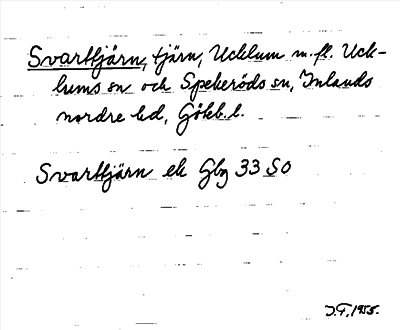 Svarttjärn, tjärn, Ucklum m.fl. Uck-
lums sn och Spekeröds sn, Inlands
nordre hd, Gökb. l.
Svarttjärn ek Gbg 33 SO
J.F, 1955.